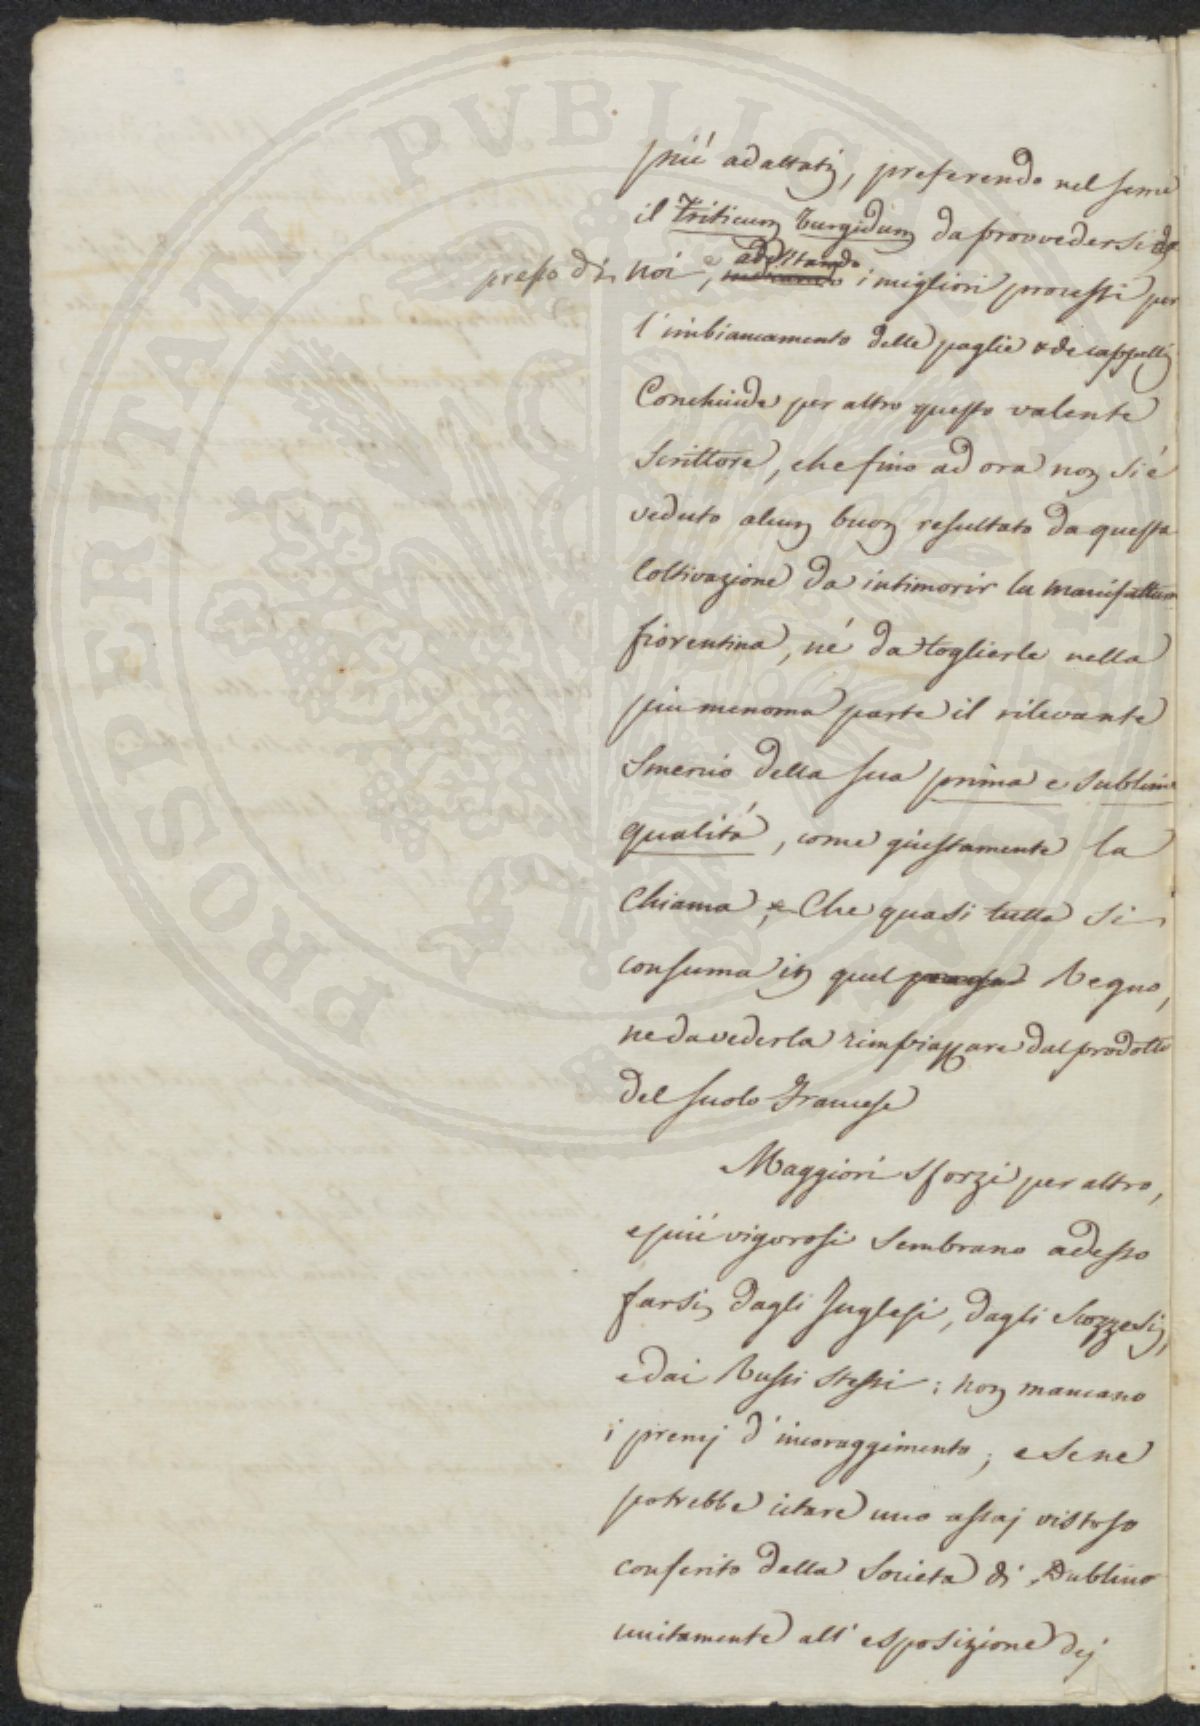 piú adattati, preferendo nel seme
il Triticum turgidum da provvedersi da
presso di noi, e adottando indicando i migliori processi per
l'imbiancamento delle paglie e de cappelli
Conchiude per altro questo valente
Scrittore, che fino ad ora non si é
veduto alcun buon resultato da questa
Coltivazione da intimorir la manifattura
fiorentina, né da toglierle nella
piu menoma parte il rilevante
Smercio della sua prima e sublime
qualitá, come giustamente la
Chiama, e Che quasi tutta si
consuma in quel Regno,
ne da vederla rimpiazzare dal prodotto
del suolo Francese
Maggiori sforzi per altro,
e piú vigorosi sembrano adesso
farsi dagli Inglesi, dagli Scozzesi,
e dai Russi stessi; non mancano
i premj d'incoraggimento; e se ne
potrebbe citare uno assaj vistoso
conferito dalla Societa di Dublino
unitamente all'esposizione dej
PROSPERITATI PVBLICAE